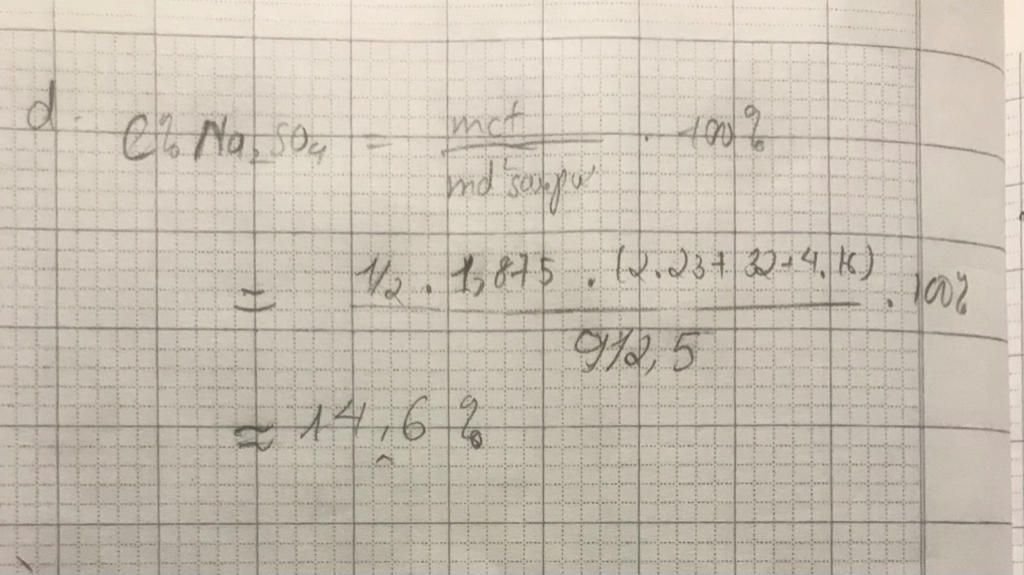 d. C% Na₂SO₄ = mct / md² sau pư . 100%
= 1/2 . 1,875 . (2.23+32+4.16) / 912,5 . 100%
≈ 14,6 %